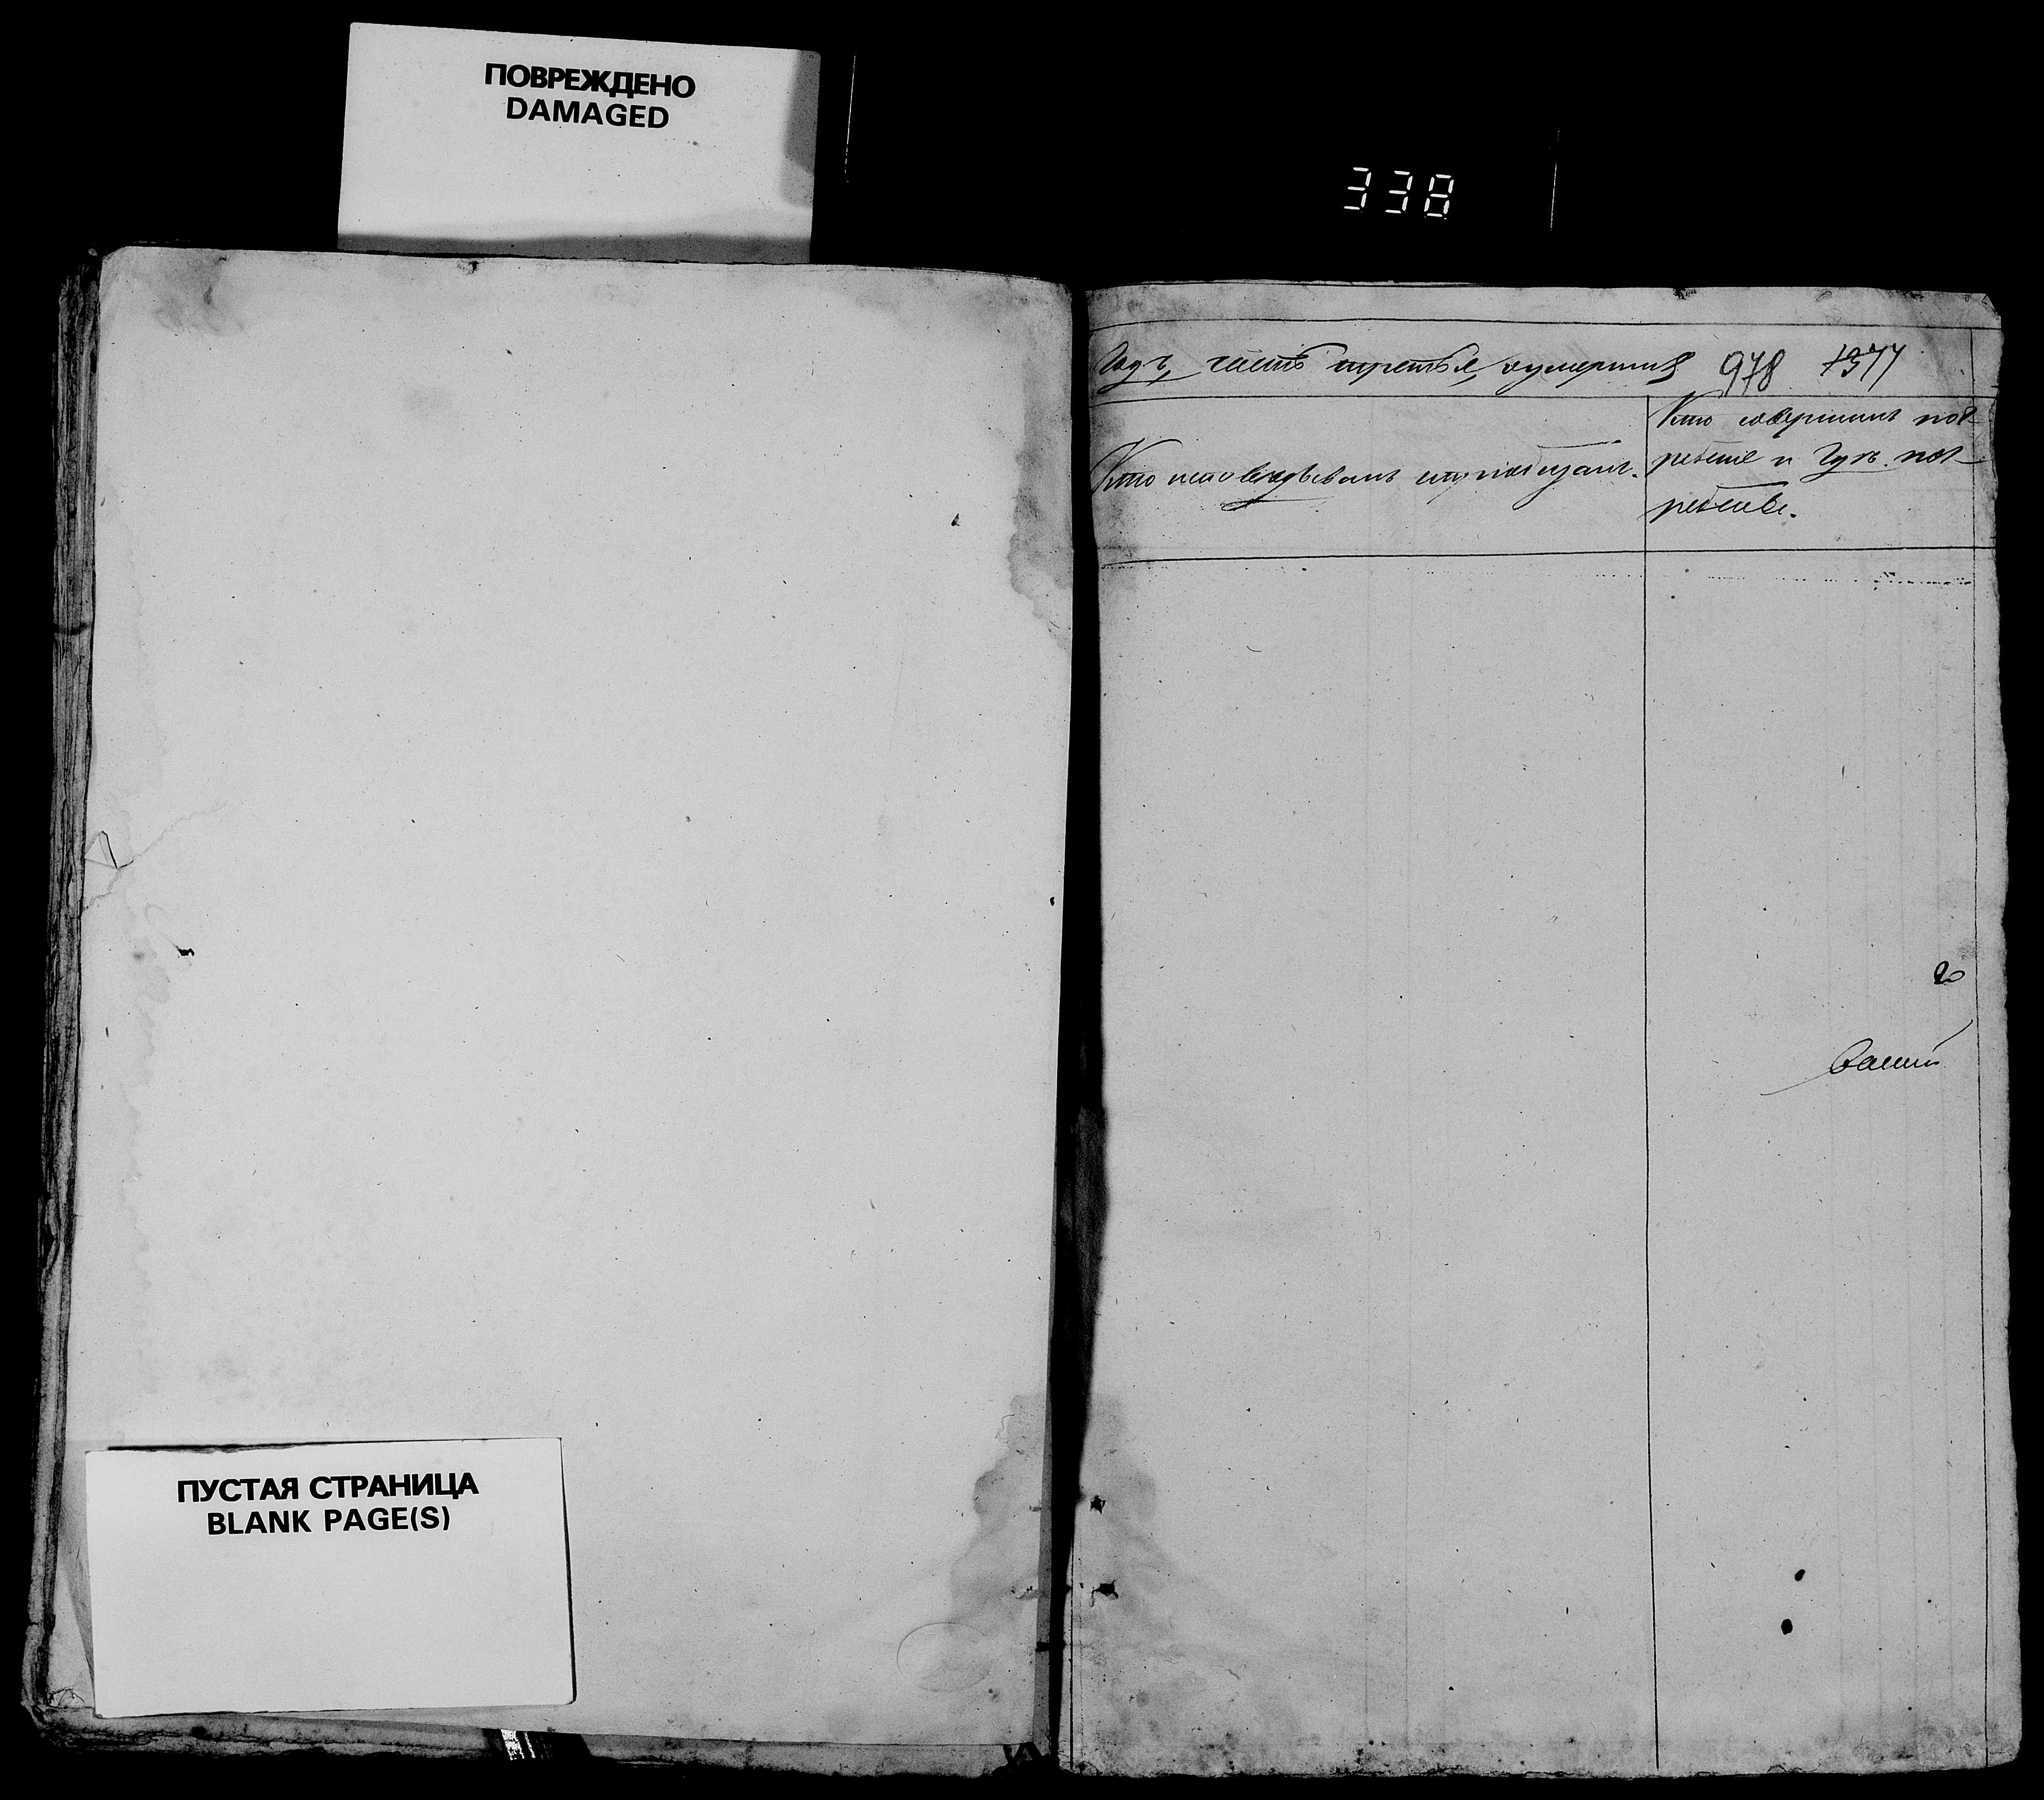 ПОВРЕЖДЕНО
DAMAGED
338
Годъ, часть третья, о умершихъ 978 1377
Кто исповѣдывалъ и пріобщалъ.
Кто совершилъ пог-
ребеніе и гдѣ пог-
ребены.
ПУСТАЯ СТРАНИЦА
BLANK PAGE(S)